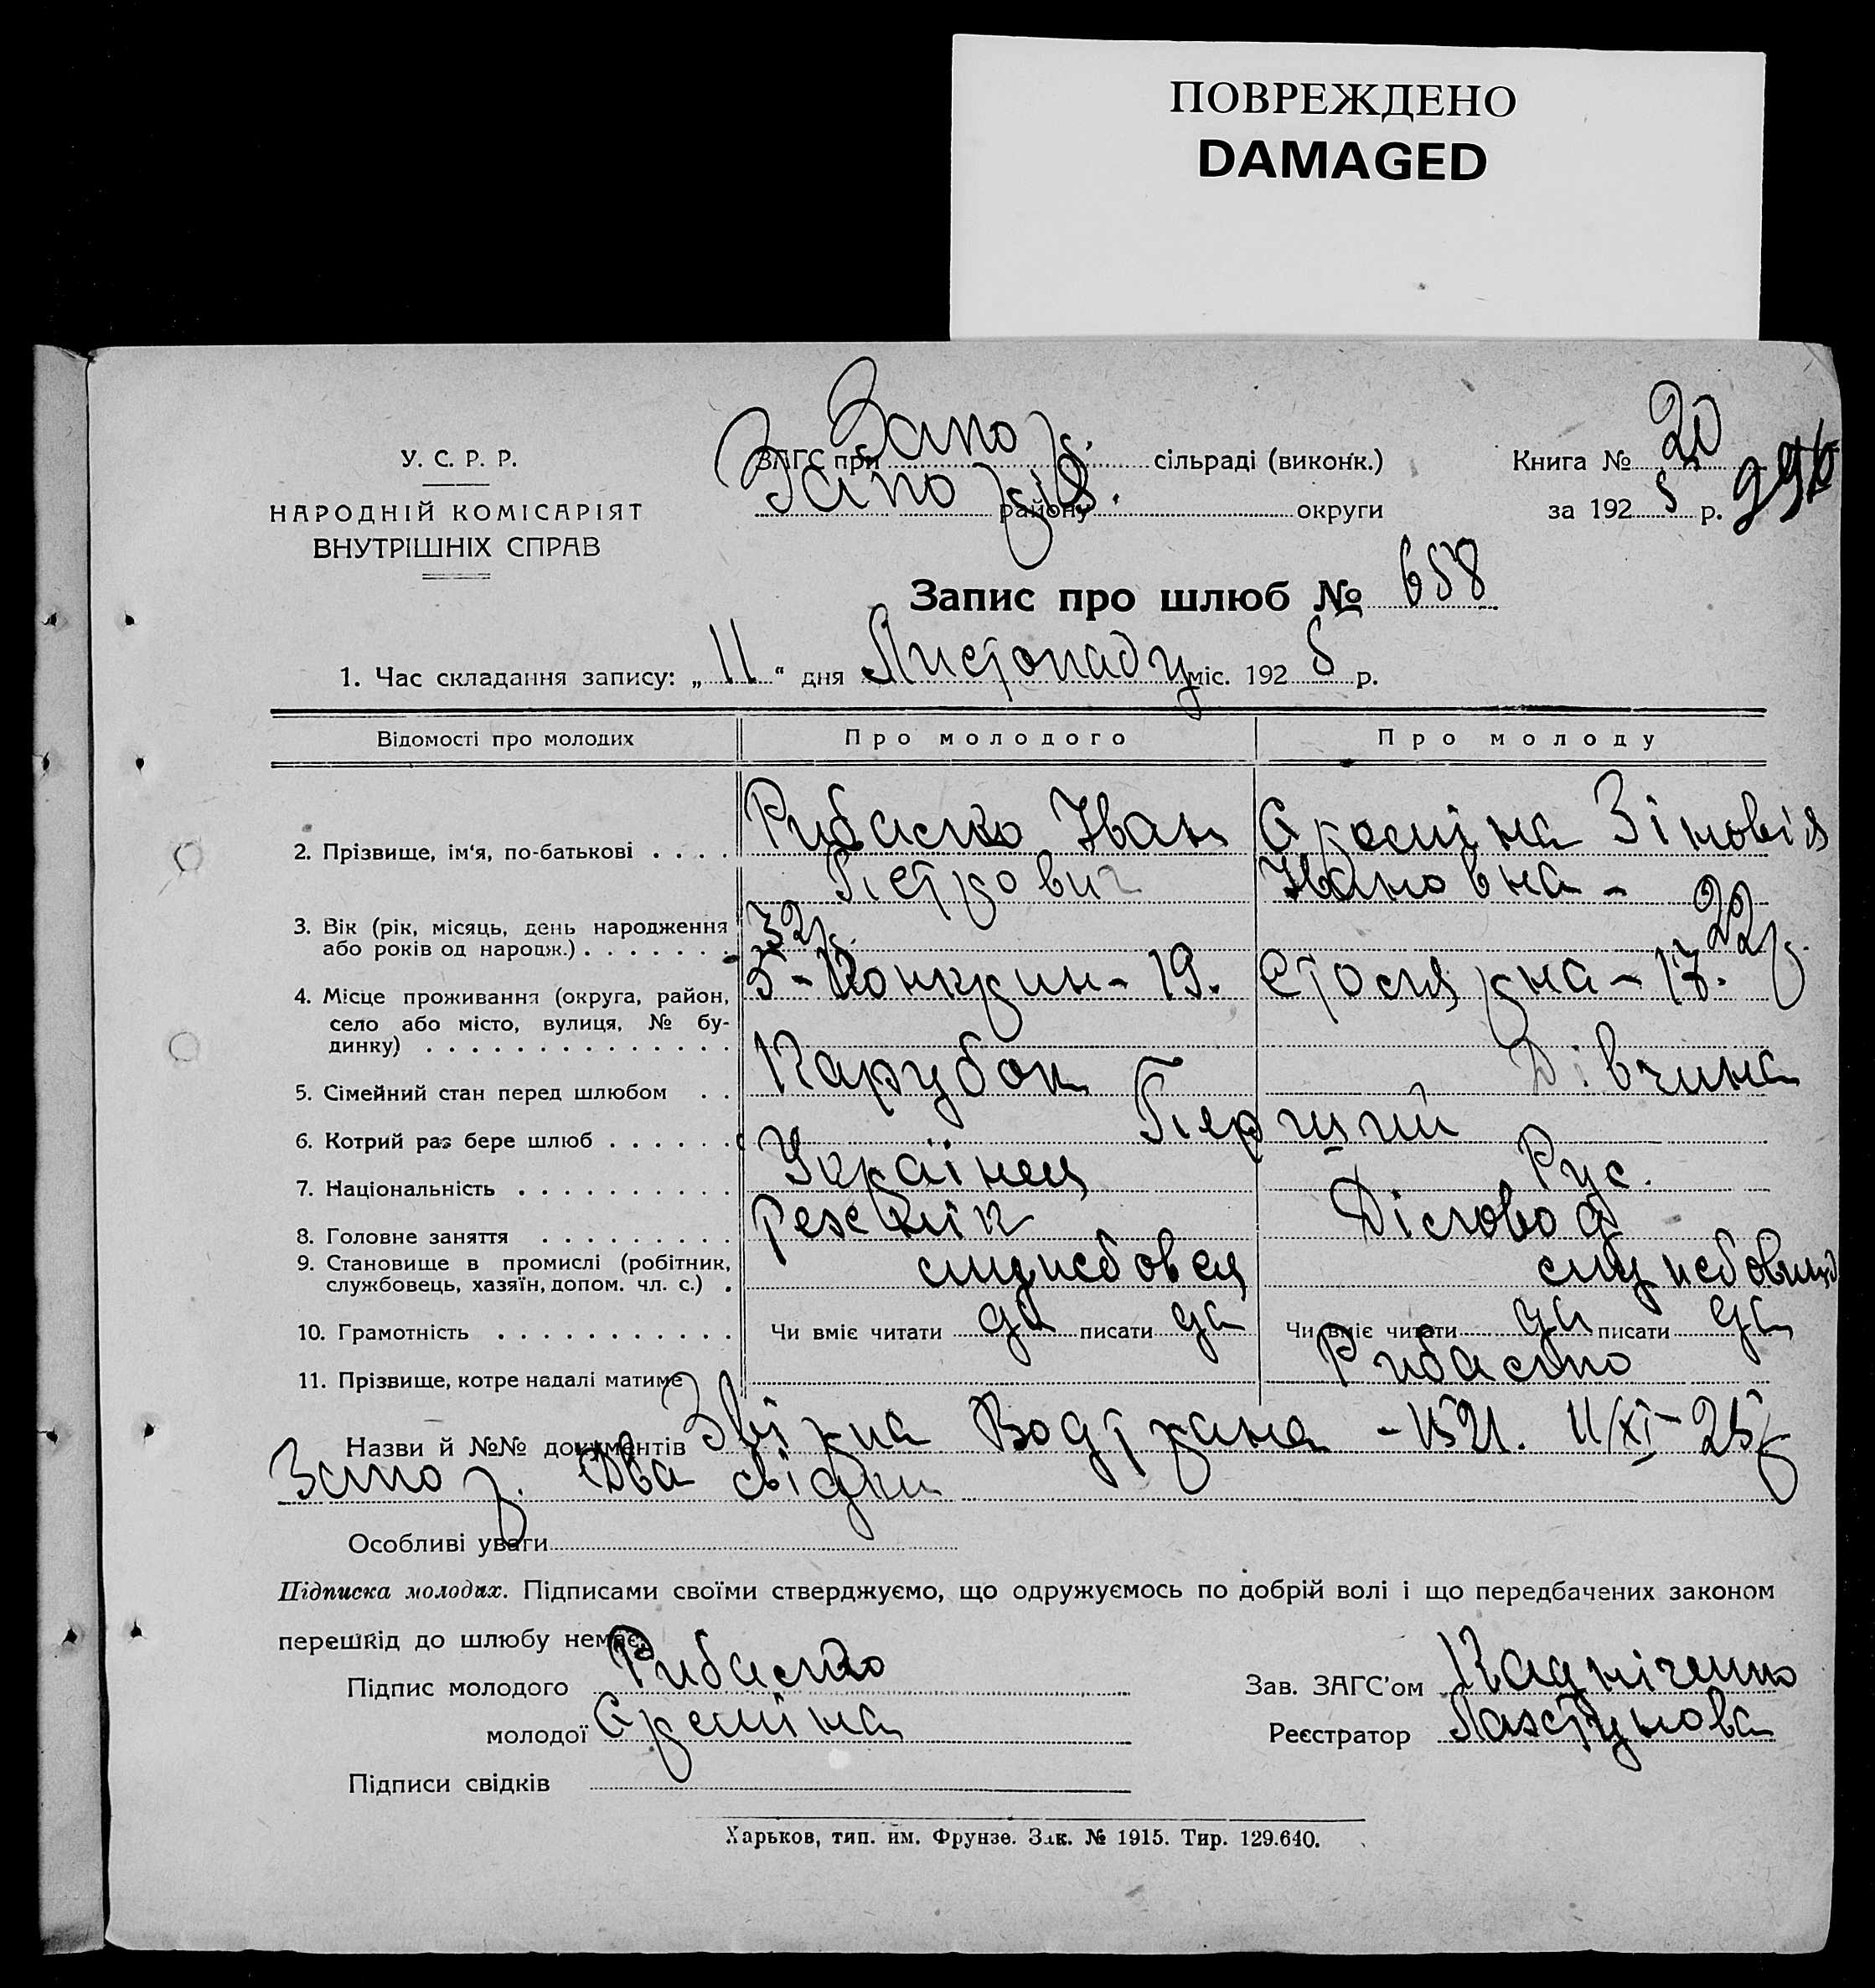 ПОВРЕЖДЕНО
DAMAGED
У. С. Р. Р.
НАРОДНІЙ КОМІСАРІЯТ
ВНУТРІШНІХ СПРАВ
ЗАГС при Запо сільраді (виконк.)
району округи
Книга № 20
за 1925 р.
Запис про шлюб № 658
1. Час складання запису: „ 11 “ дня Листопаду міс. 1925 р.
Відомості про молодих Про молодого Про молоду
2. Прізвище, ім‘я, по-батькові . . . . Рибалко Іван Зіновія
Петрович Івановна -
3. Вік (рік, місяць, день народження 32р. 22р.
або років од народж.) . . . . . . .
4. Місце проживання (округа, район, - 19. - 17.
село або місто, вулиця, № бу-
динку) . . . . . . . . . . . . . .
5. Сімейний стан перед шлюбом . . Парубок Дівчина
6. Котрий раз бере шлюб . . . . . . Перший
7. Національність . . . . . . . . . . Українец Рус.
8. Головне заняття . . . . . . . . . Діловод
9. Становище в промислі (робітник, службовец
службовець, хазяїн, допом. чл. с.) .
10. Грамотність . . . . . . . . . . . Чи вміє читати да писати да Чи вміє читати да писати да
11. Прізвище, котре надалі матиме Рибалко
Назви й №№ документів - 1521. 11/XI-25р
Запо Два свідки
Особливі уваги
Підписка молодих. Підписами своїми стверджуємо, що одружуємось по добрій волі і що передбачених законом
перешкід до шлюбу немає.
Підпис молодого Рибалко Зав. ЗАГС’ом
молодої Реєстратор
Підписи свідків
Харьков, тип. им. Фрунзе. Зак. № 1915. Тир. 129.640.